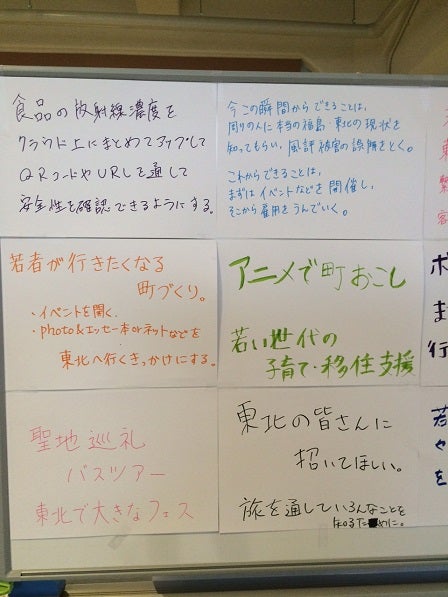 食品の放射線濃度を
クラウド上にまとめてアップして
QRコードやURLを通して
安全性を確認できるようにする。
今この瞬間からできることは、
周りの人に本当の福島・東北の現状を
知ってもらい、風評被害の誤解をとく。
これからできることは、
まずはイベントなどを開催し、
そこから雇用をうんでいく。
若者が行きたくなる
町づくり。
・イベントを開く。
・photo&エッセー本orネットなどを
東北へ行くきっかけにする。
アニメで町おこし
若い世代の
子育て・移住支援
聖地巡礼
バスツアー
東北で大きなフェス
東北の皆さんに
招いてほしい。
旅を通していろんなことを
知るために。
ボ
ま
行
若
や
を